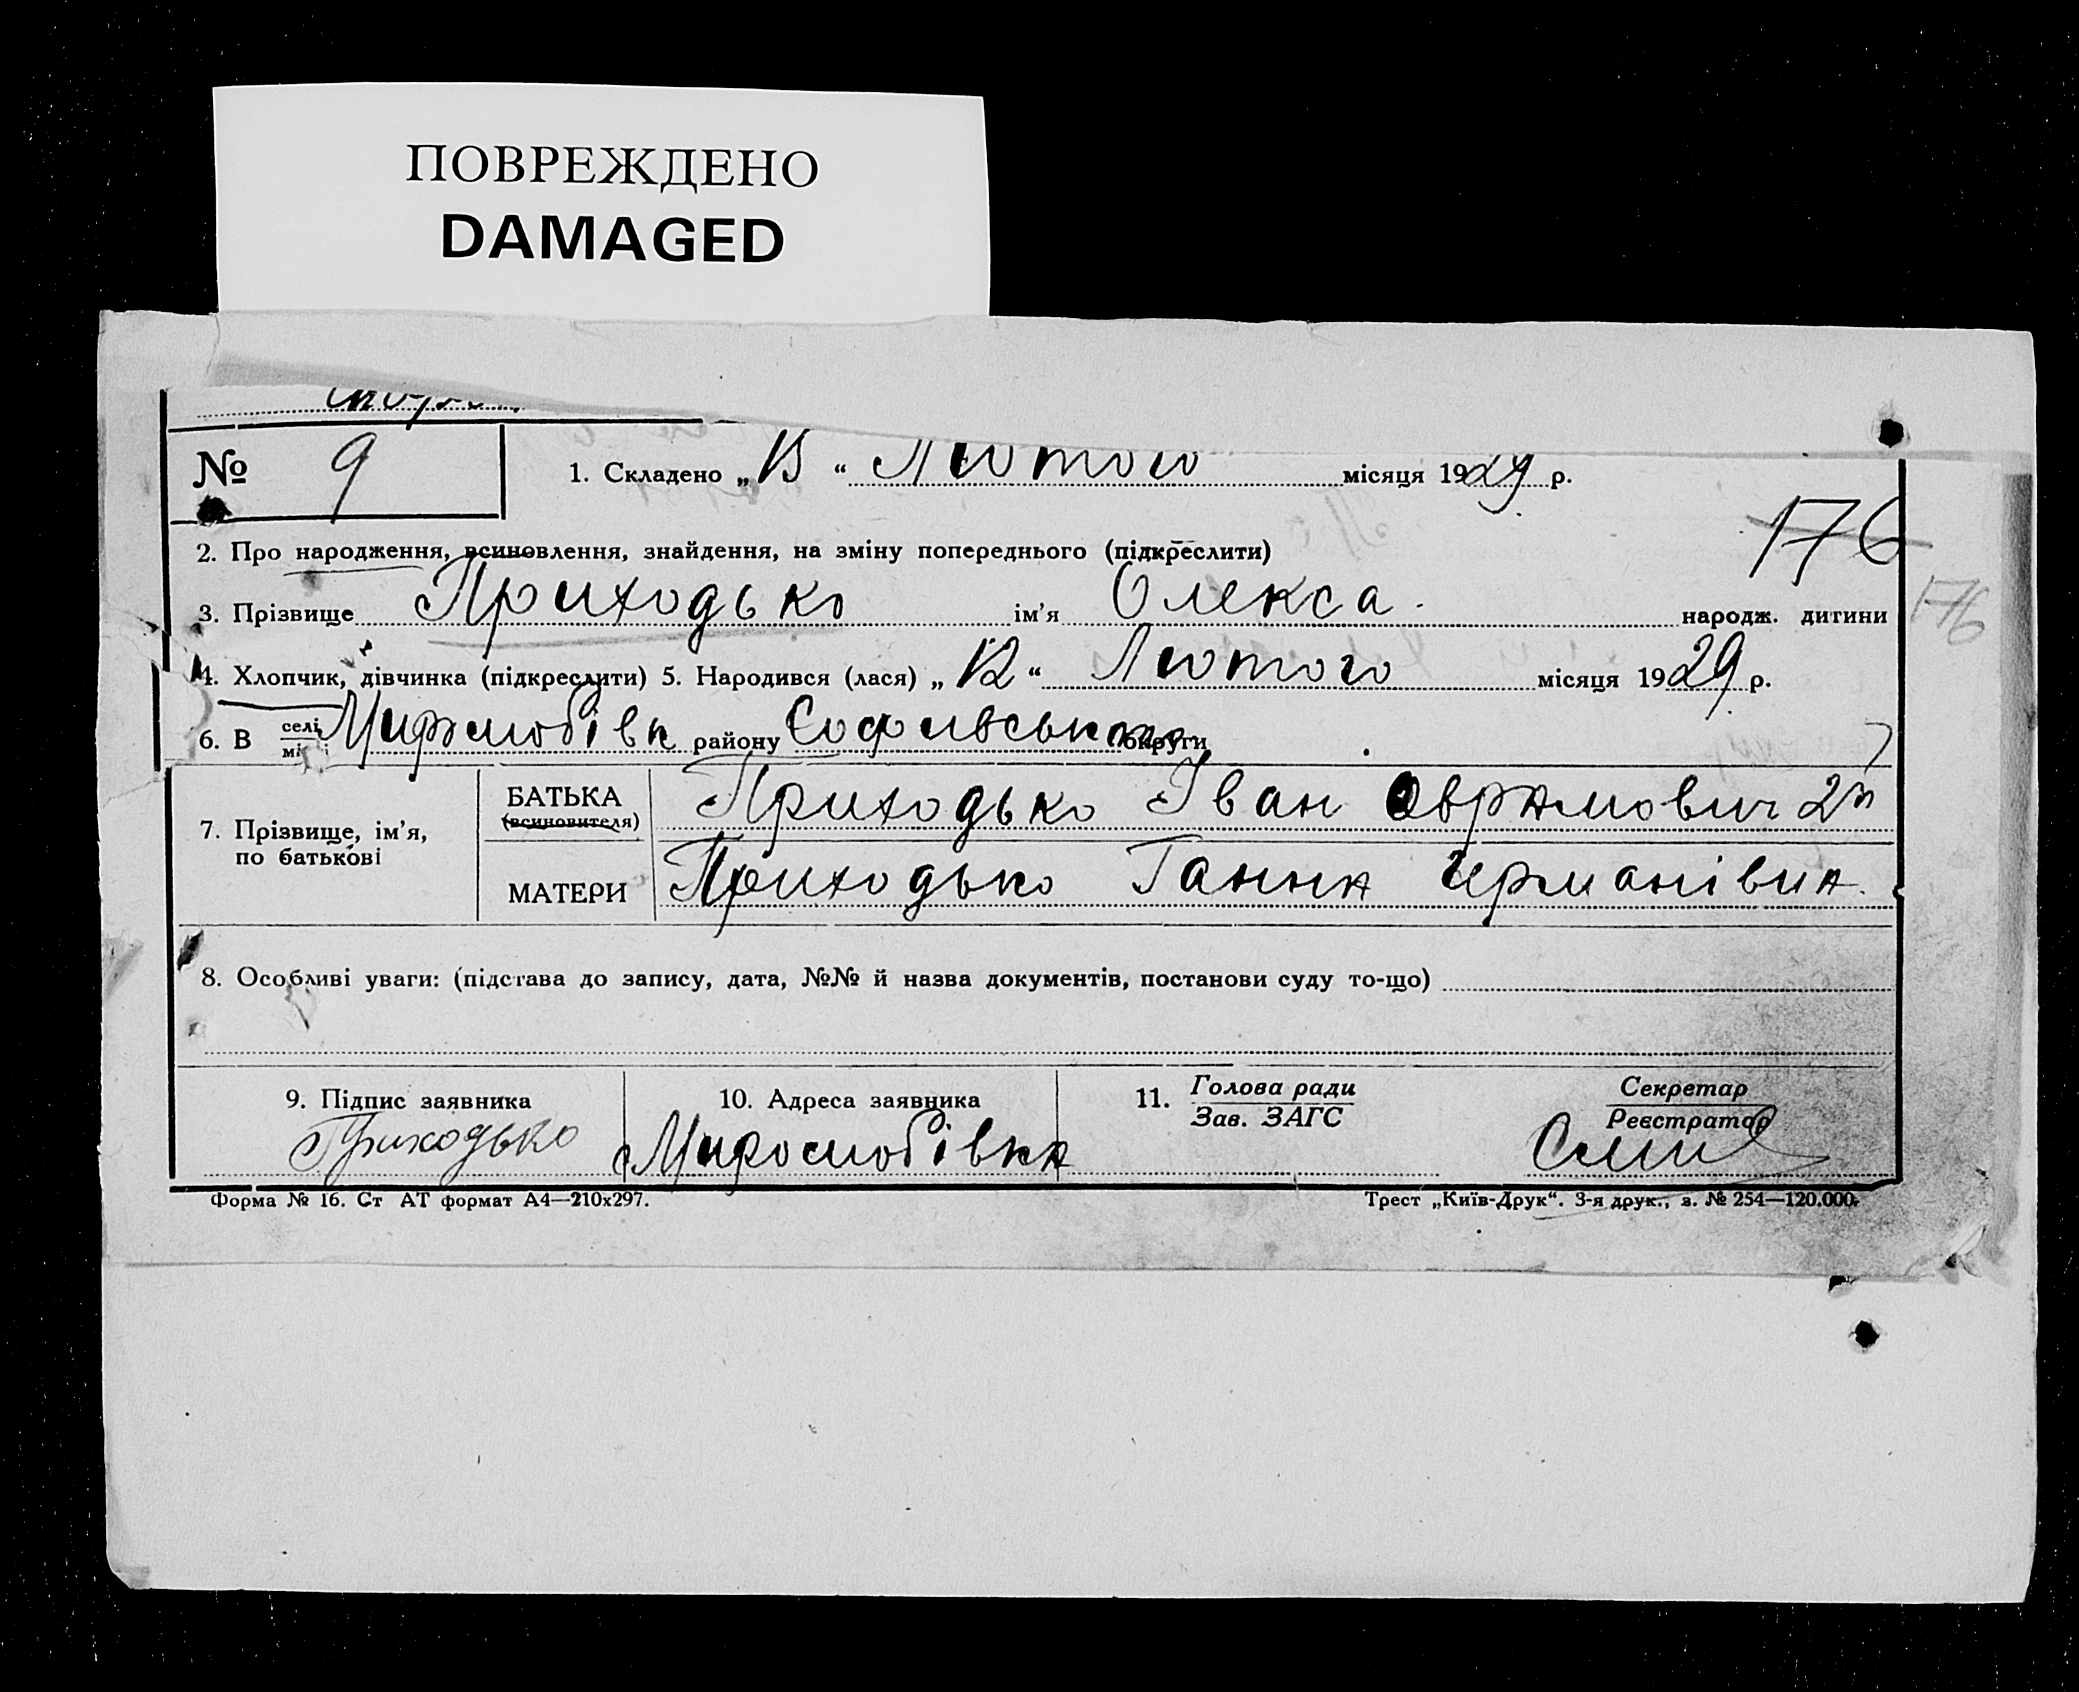 ПОВРЕЖДЕНО
DAMAGED
№ 9 1. Складено „13“ Лютого місяця 1929 р.
176
2. Про народження, всиновлення, знайдення, на зміну попереднього (підкреслити)
3. Прізвище Приходько ім’я Олекса. народж. дитини 176
4. Хлопчик, дівчинка (підкреслити) 5. Народився (лася) „12“ Лютого місяця 1929 р.
6. В селі місті району Софиівського округи
7. Прізвище, ім’я, по батькові
БАТЬКА (всиновителя) Приходько Іван Аврамович
МАТЕРИ Приходько Ганна Германівна.
8. Особливі уваги: (підстава до запису, дата, №№ й назва документів, постанови суду то-що)
9. Підпис заявника 10. Адреса заявника 11. Голова ради Зав. ЗАГС Секретар Реєстратор
Приходько Миролюбівка
Форма № 16. Ст АТ формат А4—210х297. Трест „Київ-Друк“. 3-я друк., з. № 254—120.000.